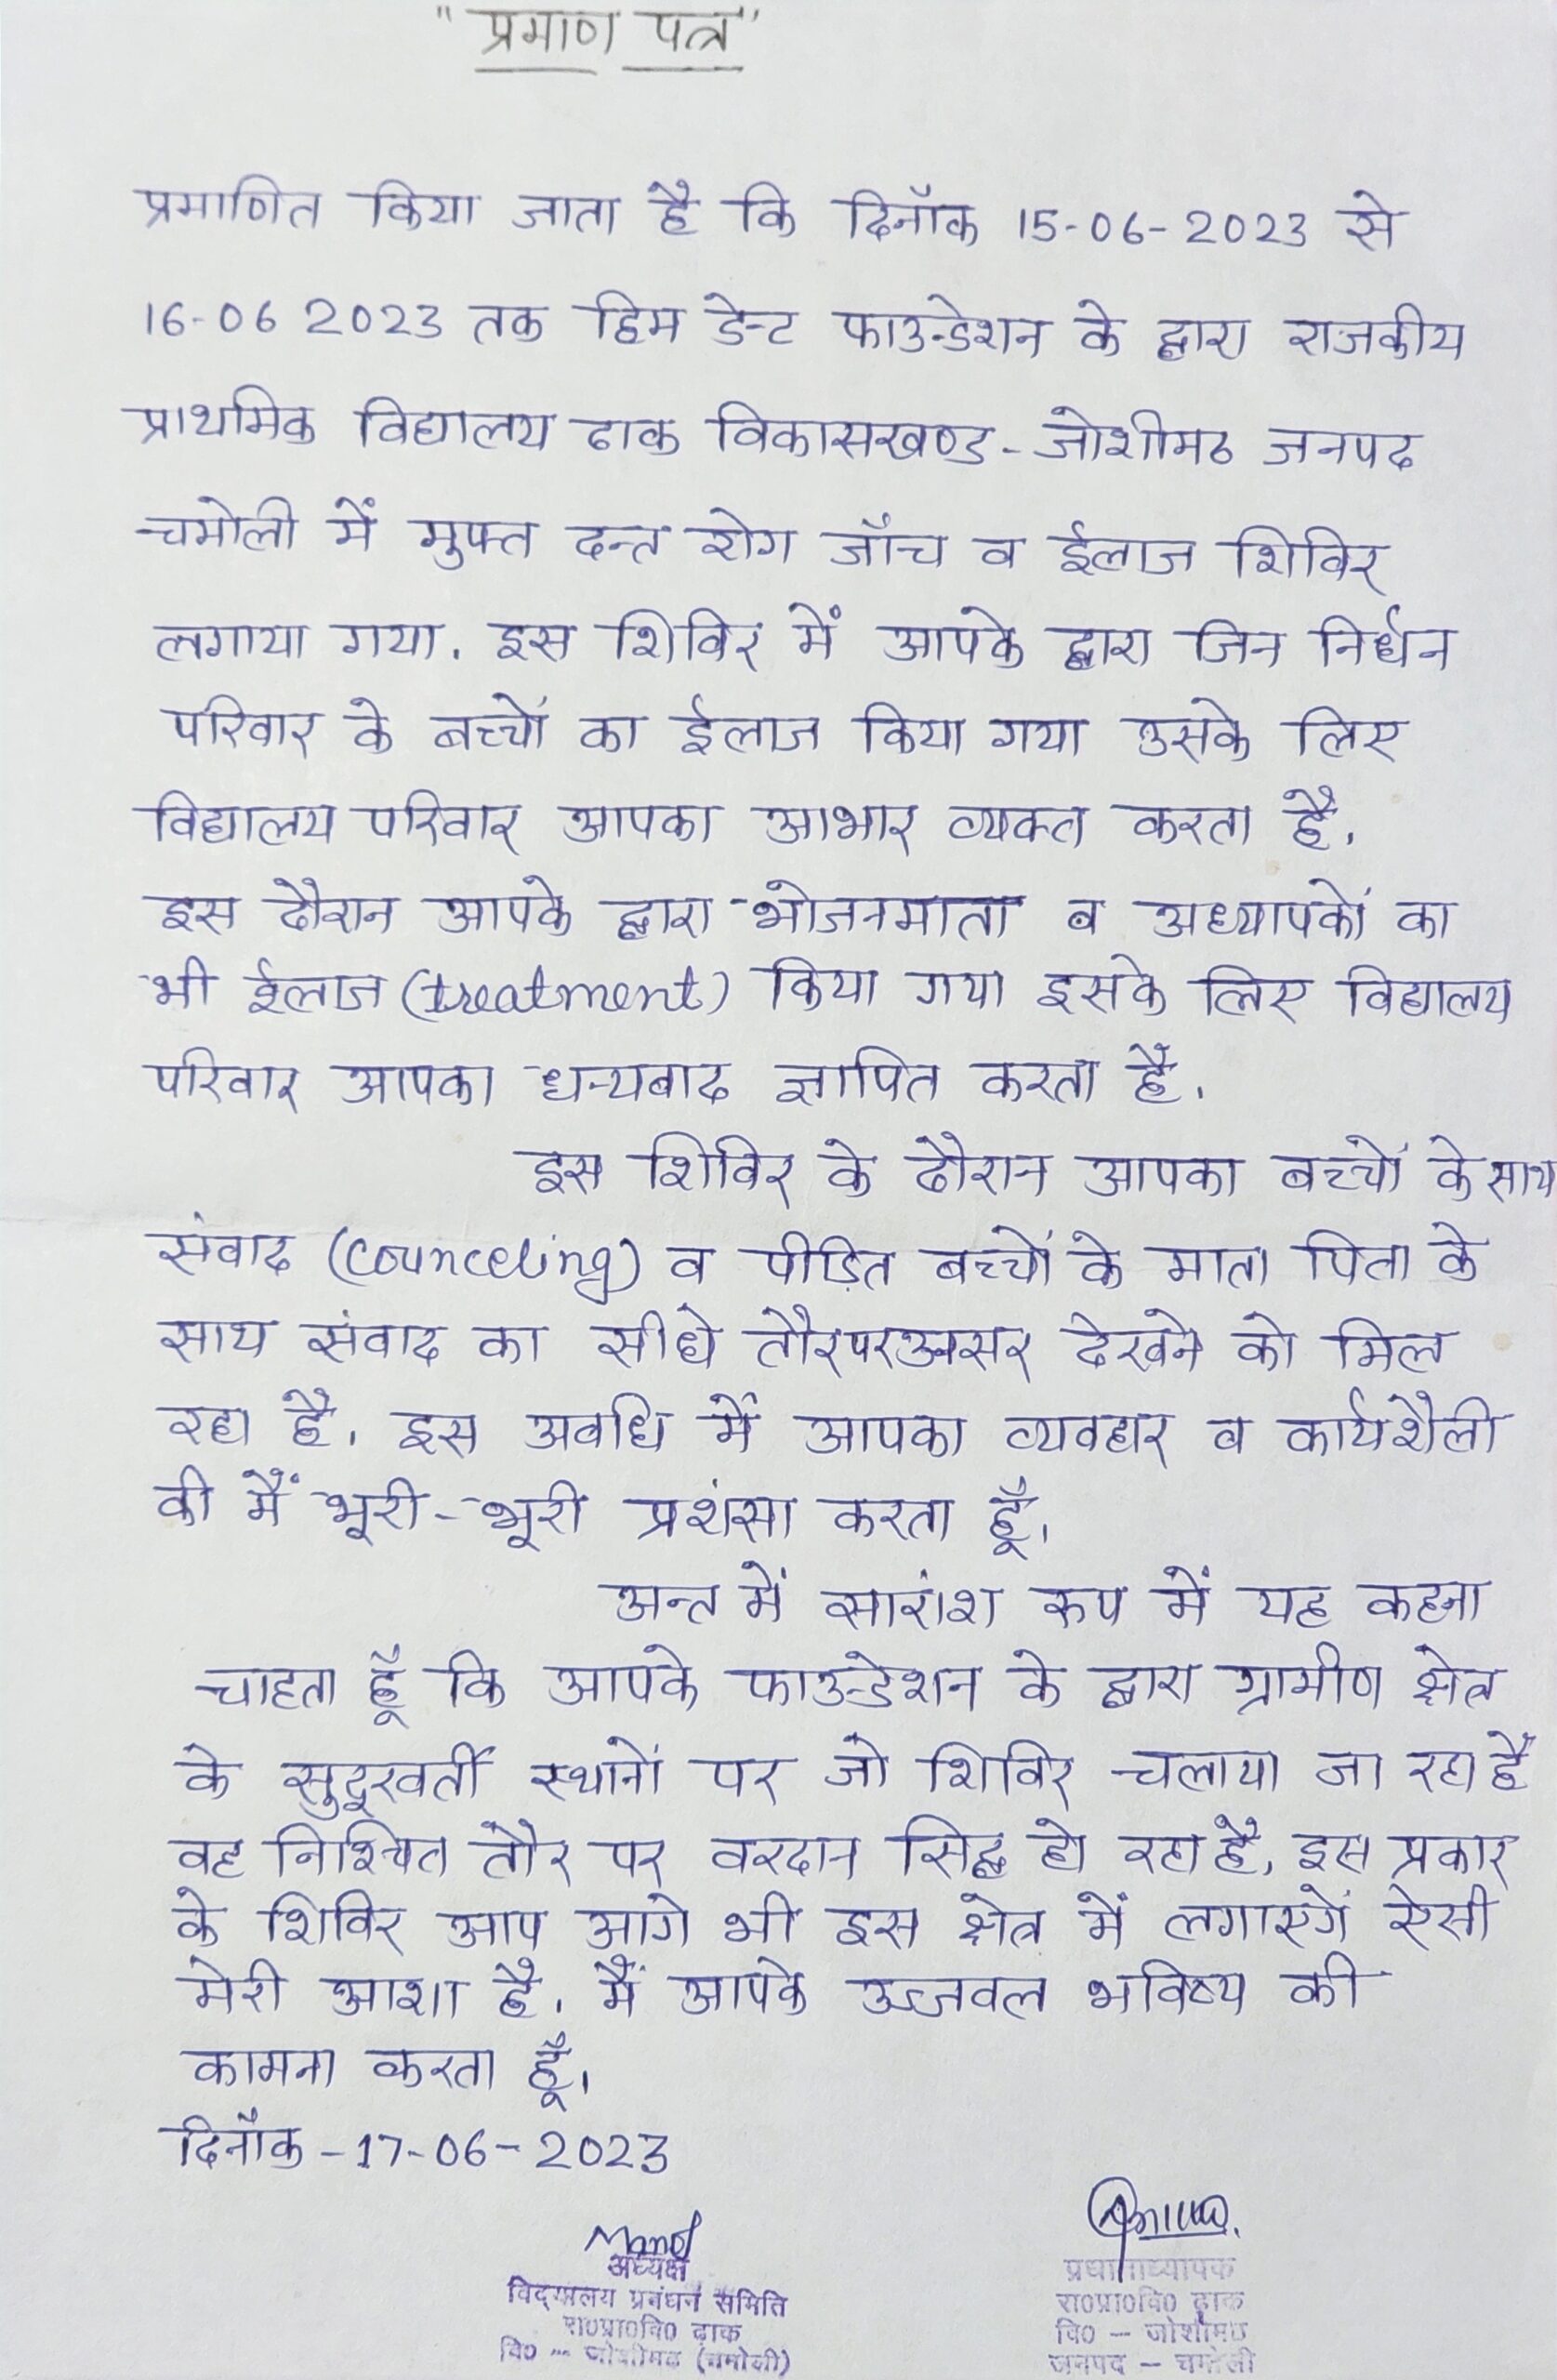 "प्रमाण पत्र"
प्रमाणित किया जाता है कि दिनाँक 15-06-2023 से
16-06 2023 तक हिम डेन्ट फाउन्डेशन के द्वारा राजकीय
प्राथमिक विद्यालय ढाक विकासखण्ड-जोशीमठ जनपद
चमोली में मुफ्त दन्त रोग जाँच व ईलाज शिविर
लगाया गया. इस शिविर में आपके द्वारा जिन निर्धन
परिवार के बच्चों का ईलाज किया गया उसके लिए
विद्यालय परिवार आपका आभार व्यक्त करता है.
इस दौरान आपके द्वारा भोजनमाता व अध्यापकों का
भी ईलाज (treatment) किया गया इसके लिए विद्यालय
परिवार आपका धन्यबाद ज्ञापित करता है.
इस शिविर के दौरान आपका बच्चों के साथ
संवाद (counceling) व पीड़ित बच्चों के माता पिता के
साथ संवाद का सीधे तौर पर अवसर देखने को मिल
रहा है. इस अवधि में आपका व्यवहार व कार्यशैली
की मैं भूरी-भूरी प्रशंसा करता हूँ.
अन्त में सारांश रूप में यह कहना
चाहता हूँ कि आपके फाउन्डेशन के द्वारा ग्रामीण क्षेत्र
के सुदूरवर्ती स्थानों पर जो शिविर चलाया जा रहा है
वह निश्चित तौर पर वरदान सिद्ध हो रहा है, इस प्रकार
के शिविर आप आगे भी इस क्षेत्र में लगाएगें ऐसी
मेरी आशा है. मैं आपके उज्जवल भविष्य की
कामना करता हूँ.
दिनाँक -17-06-2023
Manoj
अध्यक्ष
विद्यालय प्रबंधन समिति
रा०प्रा०वि० ढाक
वि० -- जोशीमठ (चमोली)
प्रधानाध्यापक
रा०प्रा०वि० ढाक
वि० - जोशीमठ
जनपद - चमोली